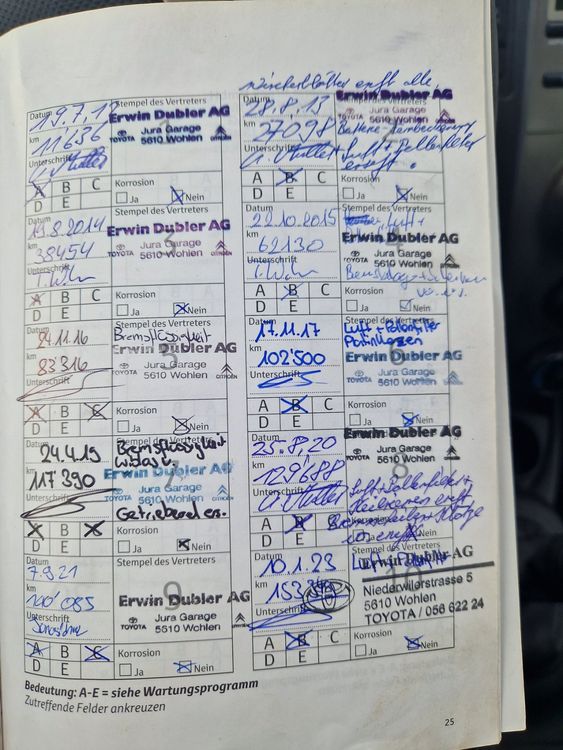 Wischerblätter erst. alle.
Datum
19.7.12
Stempel des Vertreters
Erwin Dubler AG
1
km
11'656
Jura Garage
TOYOTA 5610 Wohlen CITROËN
Unterschrift
A B C
D E
Korrosion
Ja Nein
Datum
28.8.13
Stempel des Vertreters
Erwin Dubler AG
km
27098
Jura Garage
TOYOTA 5610 Wohlen CITROËN
Unterschrift
Luft + Pollenfilter
ersetzt.
A B C
D E
Korrosion
Ja Nein
Datum
19.8.2014
Stempel des Vertreters
Erwin Dubler AG
3
km
38454
Jura Garage
TOYOTA 5610 Wohlen CITROËN
Unterschrift
A B C
D E
Korrosion
Ja Nein
Datum
22.10.2015
Stempel des Vertreters
Luft +
Erwin Dubler AG
4
km
62130
Jura Garage
TOYOTA 5610 Wohlen CITROËN
Unterschrift
A B C
D E
Korrosion
Ja Nein
Datum
24.11.16
Stempel des Vertreters
Bremsflüssigkeit
Erwin Dubler AG
5
km
83316
Jura Garage
TOYOTA 5610 Wohlen CITROËN
Unterschrift
A B C
D E
Korrosion
Ja Nein
Datum
17.11.17
Stempel des Vertreters
Luft + Pollenfilter
Erwin Dubler AG
6
km
102'500
Jura Garage
TOYOTA 5610 Wohlen CITROËN
Unterschrift
A B C
D E
Korrosion
Ja Nein
Datum
24.4.19
Stempel des Vertreters
Bremsflüssigkeit
Erwin Dubler AG
7
km
117390
Jura Garage
TOYOTA 5610 Wohlen CITROËN
Unterschrift
Getriebeoel ers.
A B C
D E
Korrosion
Ja Nein
Datum
25.8.20
Stempel des Vertreters
Erwin Dubler AG
8
km
129688
Jura Garage
TOYOTA 5610 Wohlen CITROËN
Unterschrift
Luft + Pollenfilter +
Keilriemen ersetzt
Bremsscheiben + Klötze
A B C
D E
Korrosion
Ja Nein
Datum
7.9.21
Stempel des Vertreters
Erwin Dubler AG
9
km
140'085
Jura Garage
TOYOTA 5610 Wohlen CITROËN
Unterschrift
A B C
D E
Korrosion
Ja Nein
Datum
10.1.23
Stempel des Vertreters
Erwin Dubler AG
10
km
Niederwilerstrasse 5
5610 Wohlen
TOYOTA / 056 622 24
Unterschrift
A B C
D E
Korrosion
Ja Nein
Bedeutung: A-E = siehe Wartungsprogramm
Zutreffende Felder ankreuzen
25